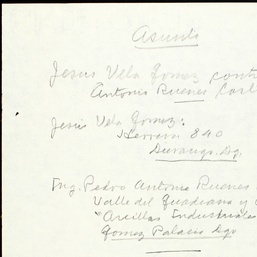 Asunto
Jesus Vela Gomez contr
Antonio Ruenes Cast
Jesus Vela Gomez:
Herrera 840
Durango, Dg.
Ing. Pedro Antonio Ruenes
Valle del Guadiana y
"Arcillas Industriale
Gomez Palacio Dgo